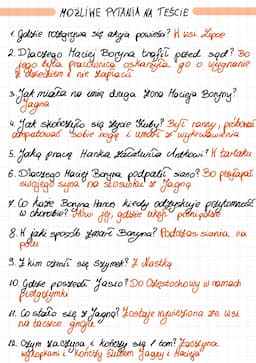 MOŻLIWE PYTANIA NA TEŚCIE
1. Gdzie rozgrywa się akcja powieści? W wsi Lipce
2. Dlaczego Maciej Boryna trafił przed sąd? Bo
jego była pracownica oskarżyła go o wygnanie
z dzieckiem i nie zapłacił
3. Jak miała na imię druga żona Macieja Boryny?
Jagna
4. Jak skończyło się życie Kuby? Był ranny, próbował
amputować sobie nogę i umarł z wykrwawienia
5. Jaką pracę Hanka załatwiła Antkowi? W tartaku
6. Dlaczego Maciej Boryna podpalił siano? Bo przyłapał
swojego syna na stosunku z Jagną
7. Co każe Boryna Hance kiedy odzyskuje przytomność
w chorobie? Mówi jej, gdzie ukrył pieniądze
8. W jaki sposób zmarł Boryna? Podczas siania na
polu
9. Z kim ożenił się Szymek? Z Nastką
10. Gdzie poszedł Jasio? Do Częstochowy w ramach
pielgrzymki
11. Co stało się z Jagną? Zostaje wywieziona ze wsi
na taczce gnoju
12. Czym zaczyna i kończy się 1 tom? Zaczyna
wykopkami i kończy ślubem Jagny i Macieja